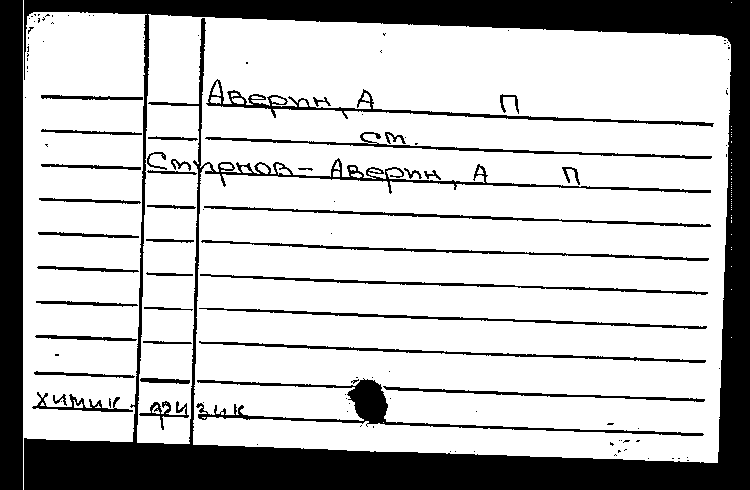 Аверин, А П
см.
Смирнов-Аверин, А П
химик. физик